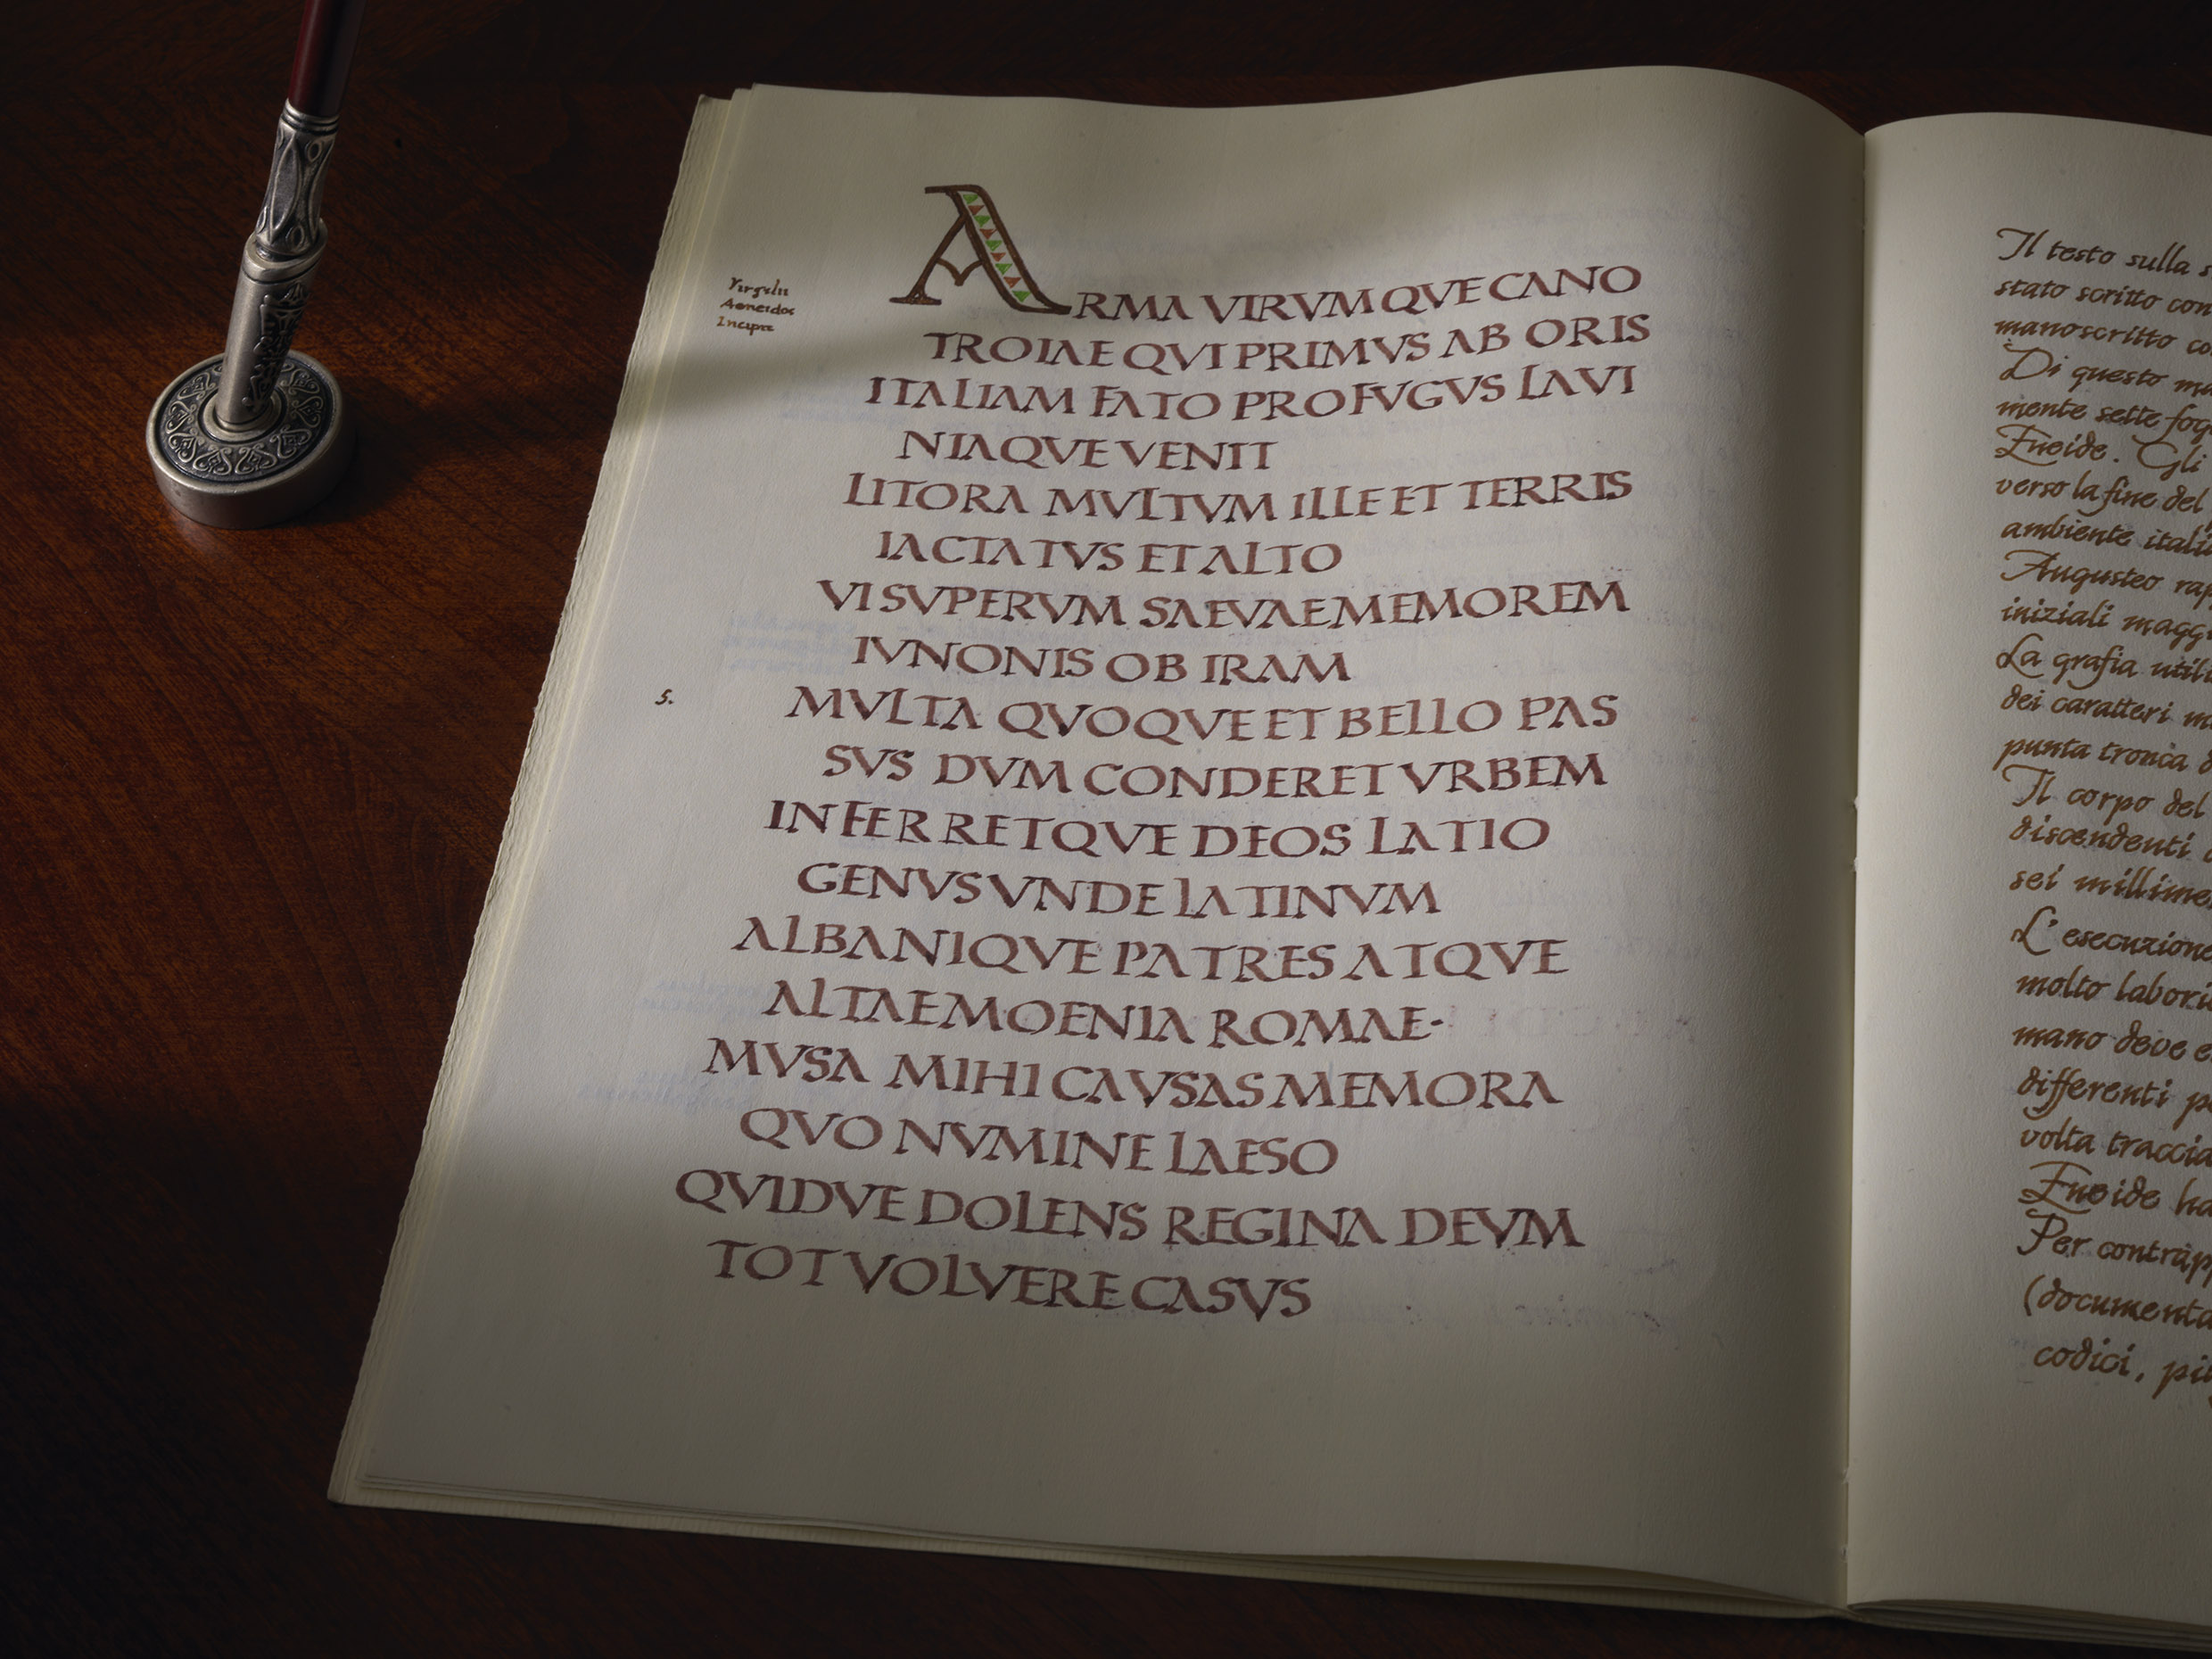 Virgilii
Aeneidos
Incipit
ARMA VIRVMQVE CANO
TROIAE QVI PRIMVS AB ORIS
ITALIAM FATO PROFVGVS LAVI
NIAQVE VENIT
LITORA MVLTVM ILLE ET TERRIS
IACTATVS ET ALTO
VI SVPERVM SAEVAE MEMOREM
IVNONIS OB IRAM
5.
MVLTA QVOQVE ET BELLO PAS
SVS DVM CONDERET VRBEM
INFERRETQVE DEOS LATIO
GENVS VNDE LATINVM
ALBANIQVE PATRES ATQVE
ALTAE MOENIA ROMAE·
MVSA MIHI CAVSAS MEMORA
QVO NVMINE LAESO
QVIDVE DOLENS REGINA DEVM
TOT VOLVERE CASVS
Il testo sulla
stato scritto con
manoscritto
Di questo
mente sette
Eneide. Gli
verso la fine del
ambiente
Augusteo
iniziali
La grafia
dei caratteri
punta tronca
Il corpo del
discendenti
sei
L'esecuzione
molto
mano deve
differenti
volta
Eneide
Per
codici,